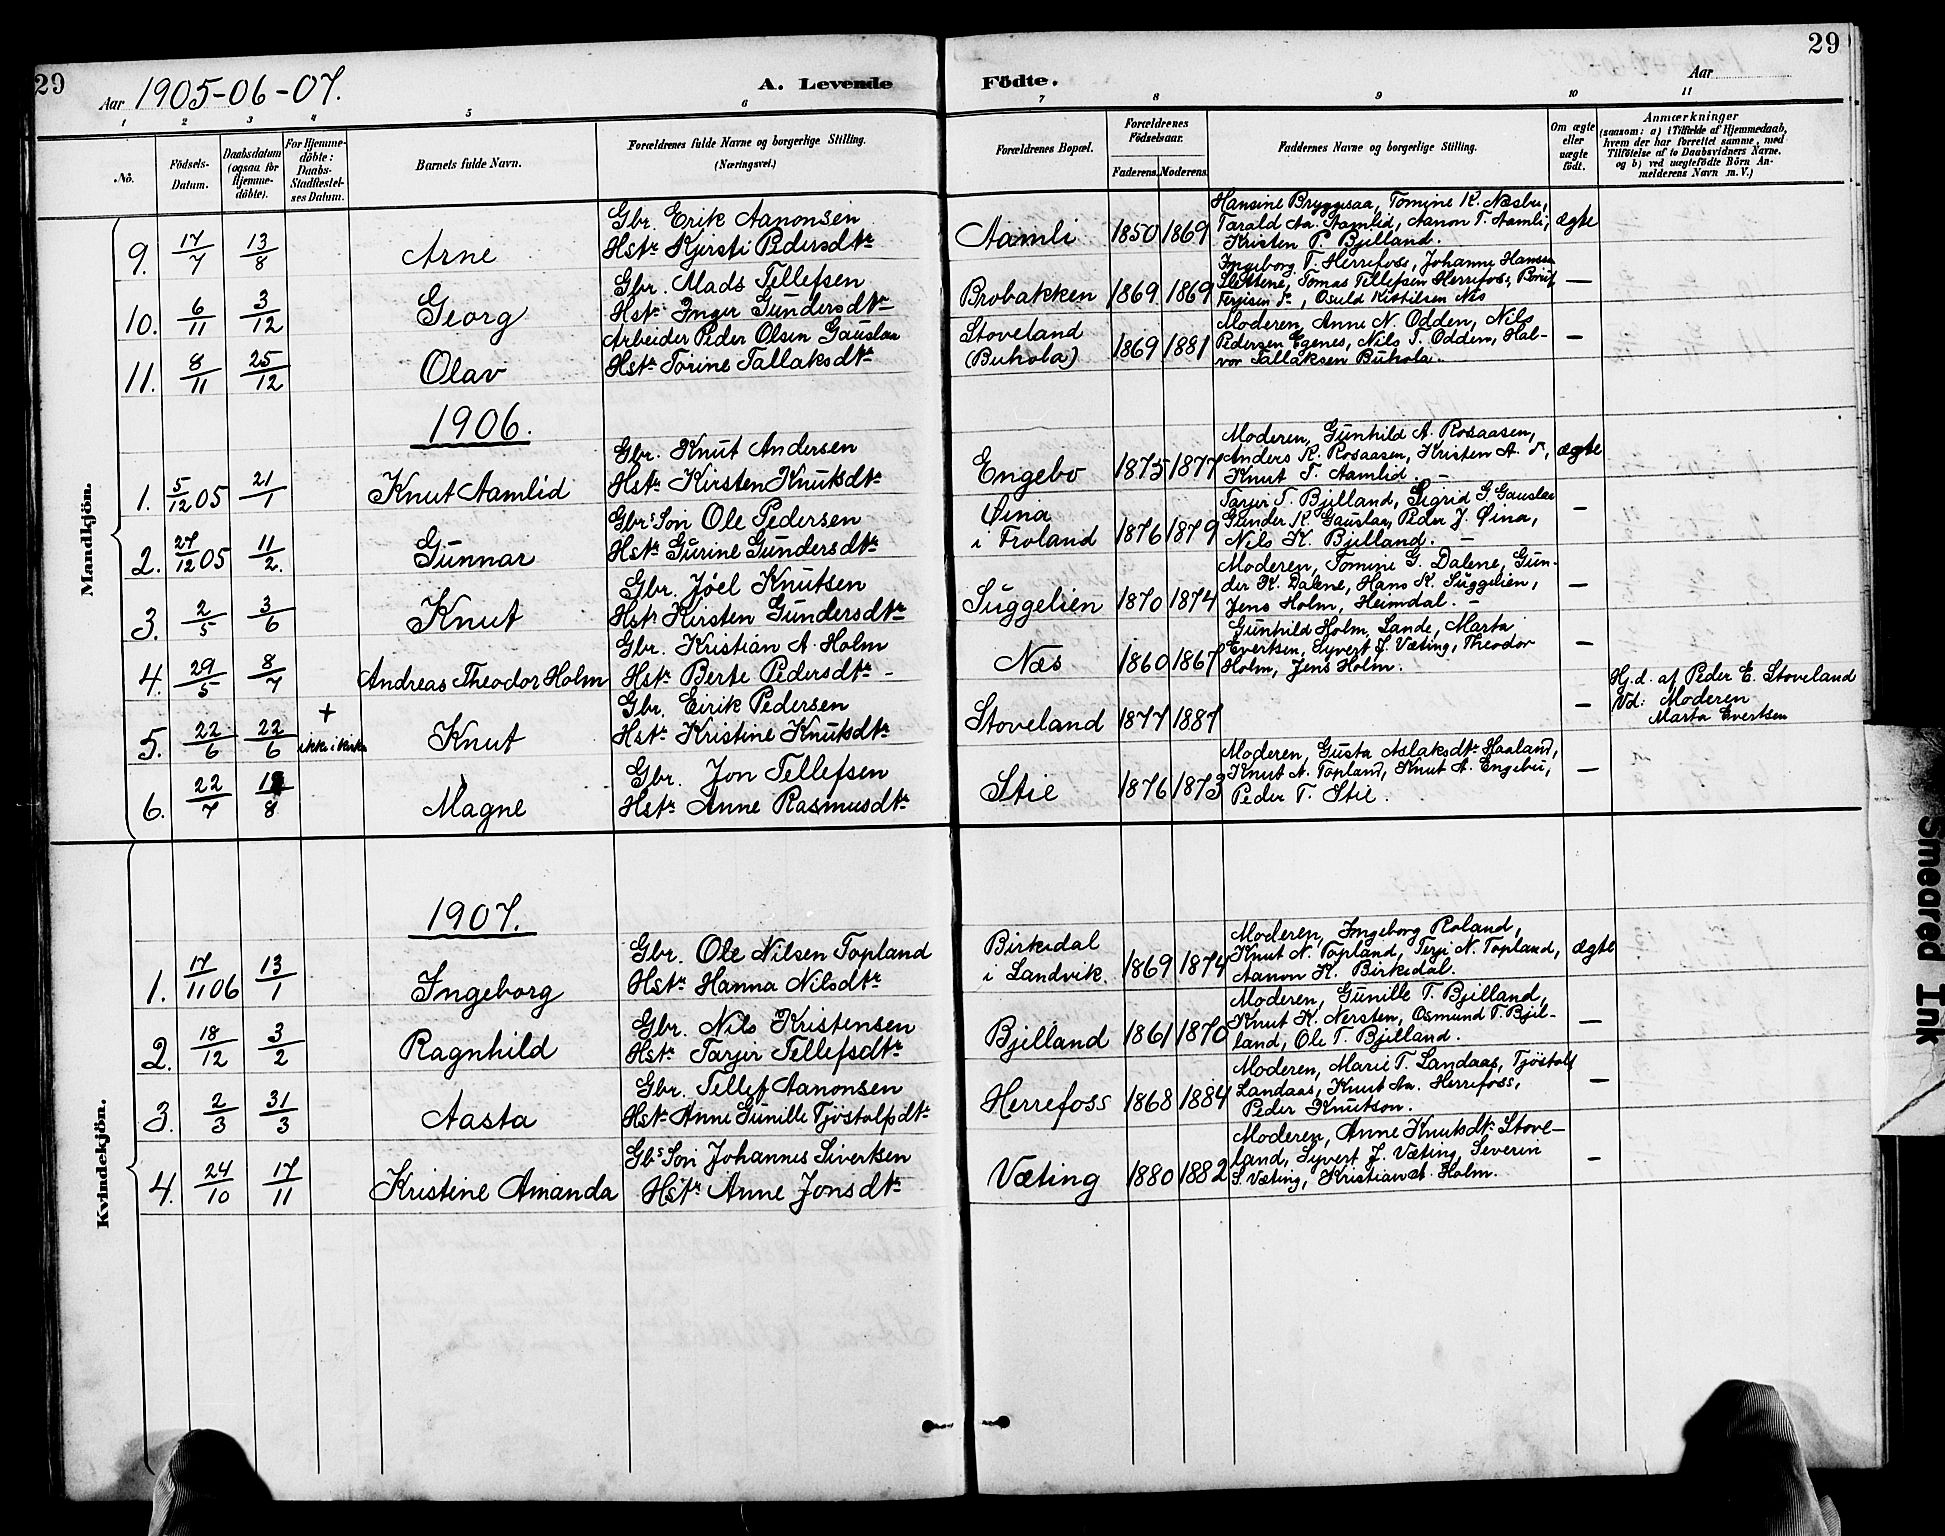 29
Aar 1905-06-07.
A. Levende
Födte.
Aar
29
1 2 3 4 5 6 7 8 9 10 11
Nô.
Födsels-Datum.
Daabsdatum (ogsaa for Hjemmedöbte).
For Hjemmedöbte: Daabs-Stadfæstelses Datum.
Barnets fulde Navn.
Forældrenes fulde Navne og borgerlige Stilling.
(Næringsvei.)
Forældrenes Bopæl.
Forældrenes Födselsaar.
Faderens. Moderens.
Faddernes Navne og borgerlige Stilling.
Om ægte eller uægte födt.
Anmærkninger
(saasom: a) i Tilfælde af Hjemmedaab, hvem der har forrettet samme, med Tilföielse af to Daabsvidners Navne, og b) ved uægtefödte Börn Anmelderens Navn m. V.)
Mandkjön.
9. 17/7 13/8 Arne
Gbr. Erik Aanonsen
Hstr. Kjersti Pedersdtr
Aamli 1850 1869
Hansine Bryggesaa, Tomine K. Næsbu,
Tarald Aa. Aamlid, Aanon T. Aamli,
Kristen P. Bjelland.
ægte
10. 6/11 3/12 Georg
Gbr. Mads Tellefsen
Hstr Inger Gundersdtr
Brobakken 1869 1869
Ingeborg T. Herrefoss, Johanne Hansen
Slettene, Tomas Tellefsen Herrefoss,
Terjesen , Osuld Kittilsen Næs
—
11. 8/11 25/12 Olav
Arbeider Peder Olsen Gauslaa
Hstr Torine Tallaksdtr
Stoveland
(Buhola) 1869 1881
Moderen, Anne N. Odden, Nils
Pedersen Egenes, Nils T. Odden, Hal-
vor Tallaksen Buhola.
—
1906.
1. 5/12 05 21/1 Knut Aamlid
Gbr. Knut Andersen
Hstr Kirsten Knutsdtr
Engebo 1875 1877
Moderen, Gunhild A. Rosaasen,
Anders K. Rosaasen, Kristen A. ,
Knut T. Aamlid. —
ægte
2. 27/12 05 11/2. Gunnar
Gbrs Son Ole Pedersen
Hstr Gurine Gundersdtr
Øina
i Froland 1876 1879
Tarjer T. Bjelland, Sigrid G. Gauslaa
Gunder K. Gauslaa, Peder J. Øina,
Nils K. Bjelland. —
—
3. 2/5 3/6 Knut
Gbr. Joel Knutsen
Hstr Kirsten Gundersdtr
Suggelien 1870 1874
Moderen, Tomine G. Dalene, Gun-
der K. Dalene, Hans K. Suggelien,
Jens Holm, Heimdal. —
—
4. 29/5 8/7 Andreas Theodor Holm
Gbr. Kristian A. Holm
Hstr Berte Pedersdtr -
Næs 1860 1867
Gunhild Holm, Lande, Marta
Evertsen, Syvert J. Væting, Theodor
Holm, Jens Holm.
—
5. 22/6 22/6 + ikke i kirken Knut
Gbr. Eirik Pedersen
Hstr Kristine Knutsdtr
Stoveland 1877 1881
—
Hj.d. af Peder E. Stoveland
Vd: Moderen
Marta Evertsen
6. 22/7 /8 Magne
Gbr. Jon Tellefsen
Hstr Anne Rasmusdtr
Stie 1876 1873
Moderen, Gusta Aslaksdtr Haaland,
Knut N. Topland, Knut A. Engebu,
Peder T. Stie.
—
Kvindekjön.
1907.
1. 17/11 06 13/1 Ingeborg
Gbr. Ole Nilsen Topland
Hstr Hanna Nilsdtr
Birkedal
i Landvik. 1869 1874
Moderen, Ingeborg Roland,
Knut N. Topland, Terji N. Topland,
Aanon K. Birkedal.
ægte
2. 18/12 3/2 Ragnhild
Gbr. Nils Kristensen
Hstr Tarjer Tellefsdtr
Bjelland 1861 1870
Moderen, Gunille T. Bjelland,
Knut K. Nersten, Osmund T. Bjel-
land, Ole T. Bjelland.
—
3. 2/3 31/3 Aasta
Gbr. Tellef Aanonsen
Hstr Anne Gunille Tjostolfsdtr
Herrefoss 1868 1884
Moderen, Marie T. Landaas, Tjøstolf
Landaas, Knut Aa. Herrefoss,
Peder Knutson.
—
4. 24/10 17/11 Kristine Amanda
Gbs Son Johannes Sivertsen
Hstr Anne Jonsdtr
Væting 1880 1882
Moderen, Anne Knutsdtr Stove-
land, Syvert J. Væting, Severin
S. Væting, Kristian A. Holm.
—
Smeared Ink